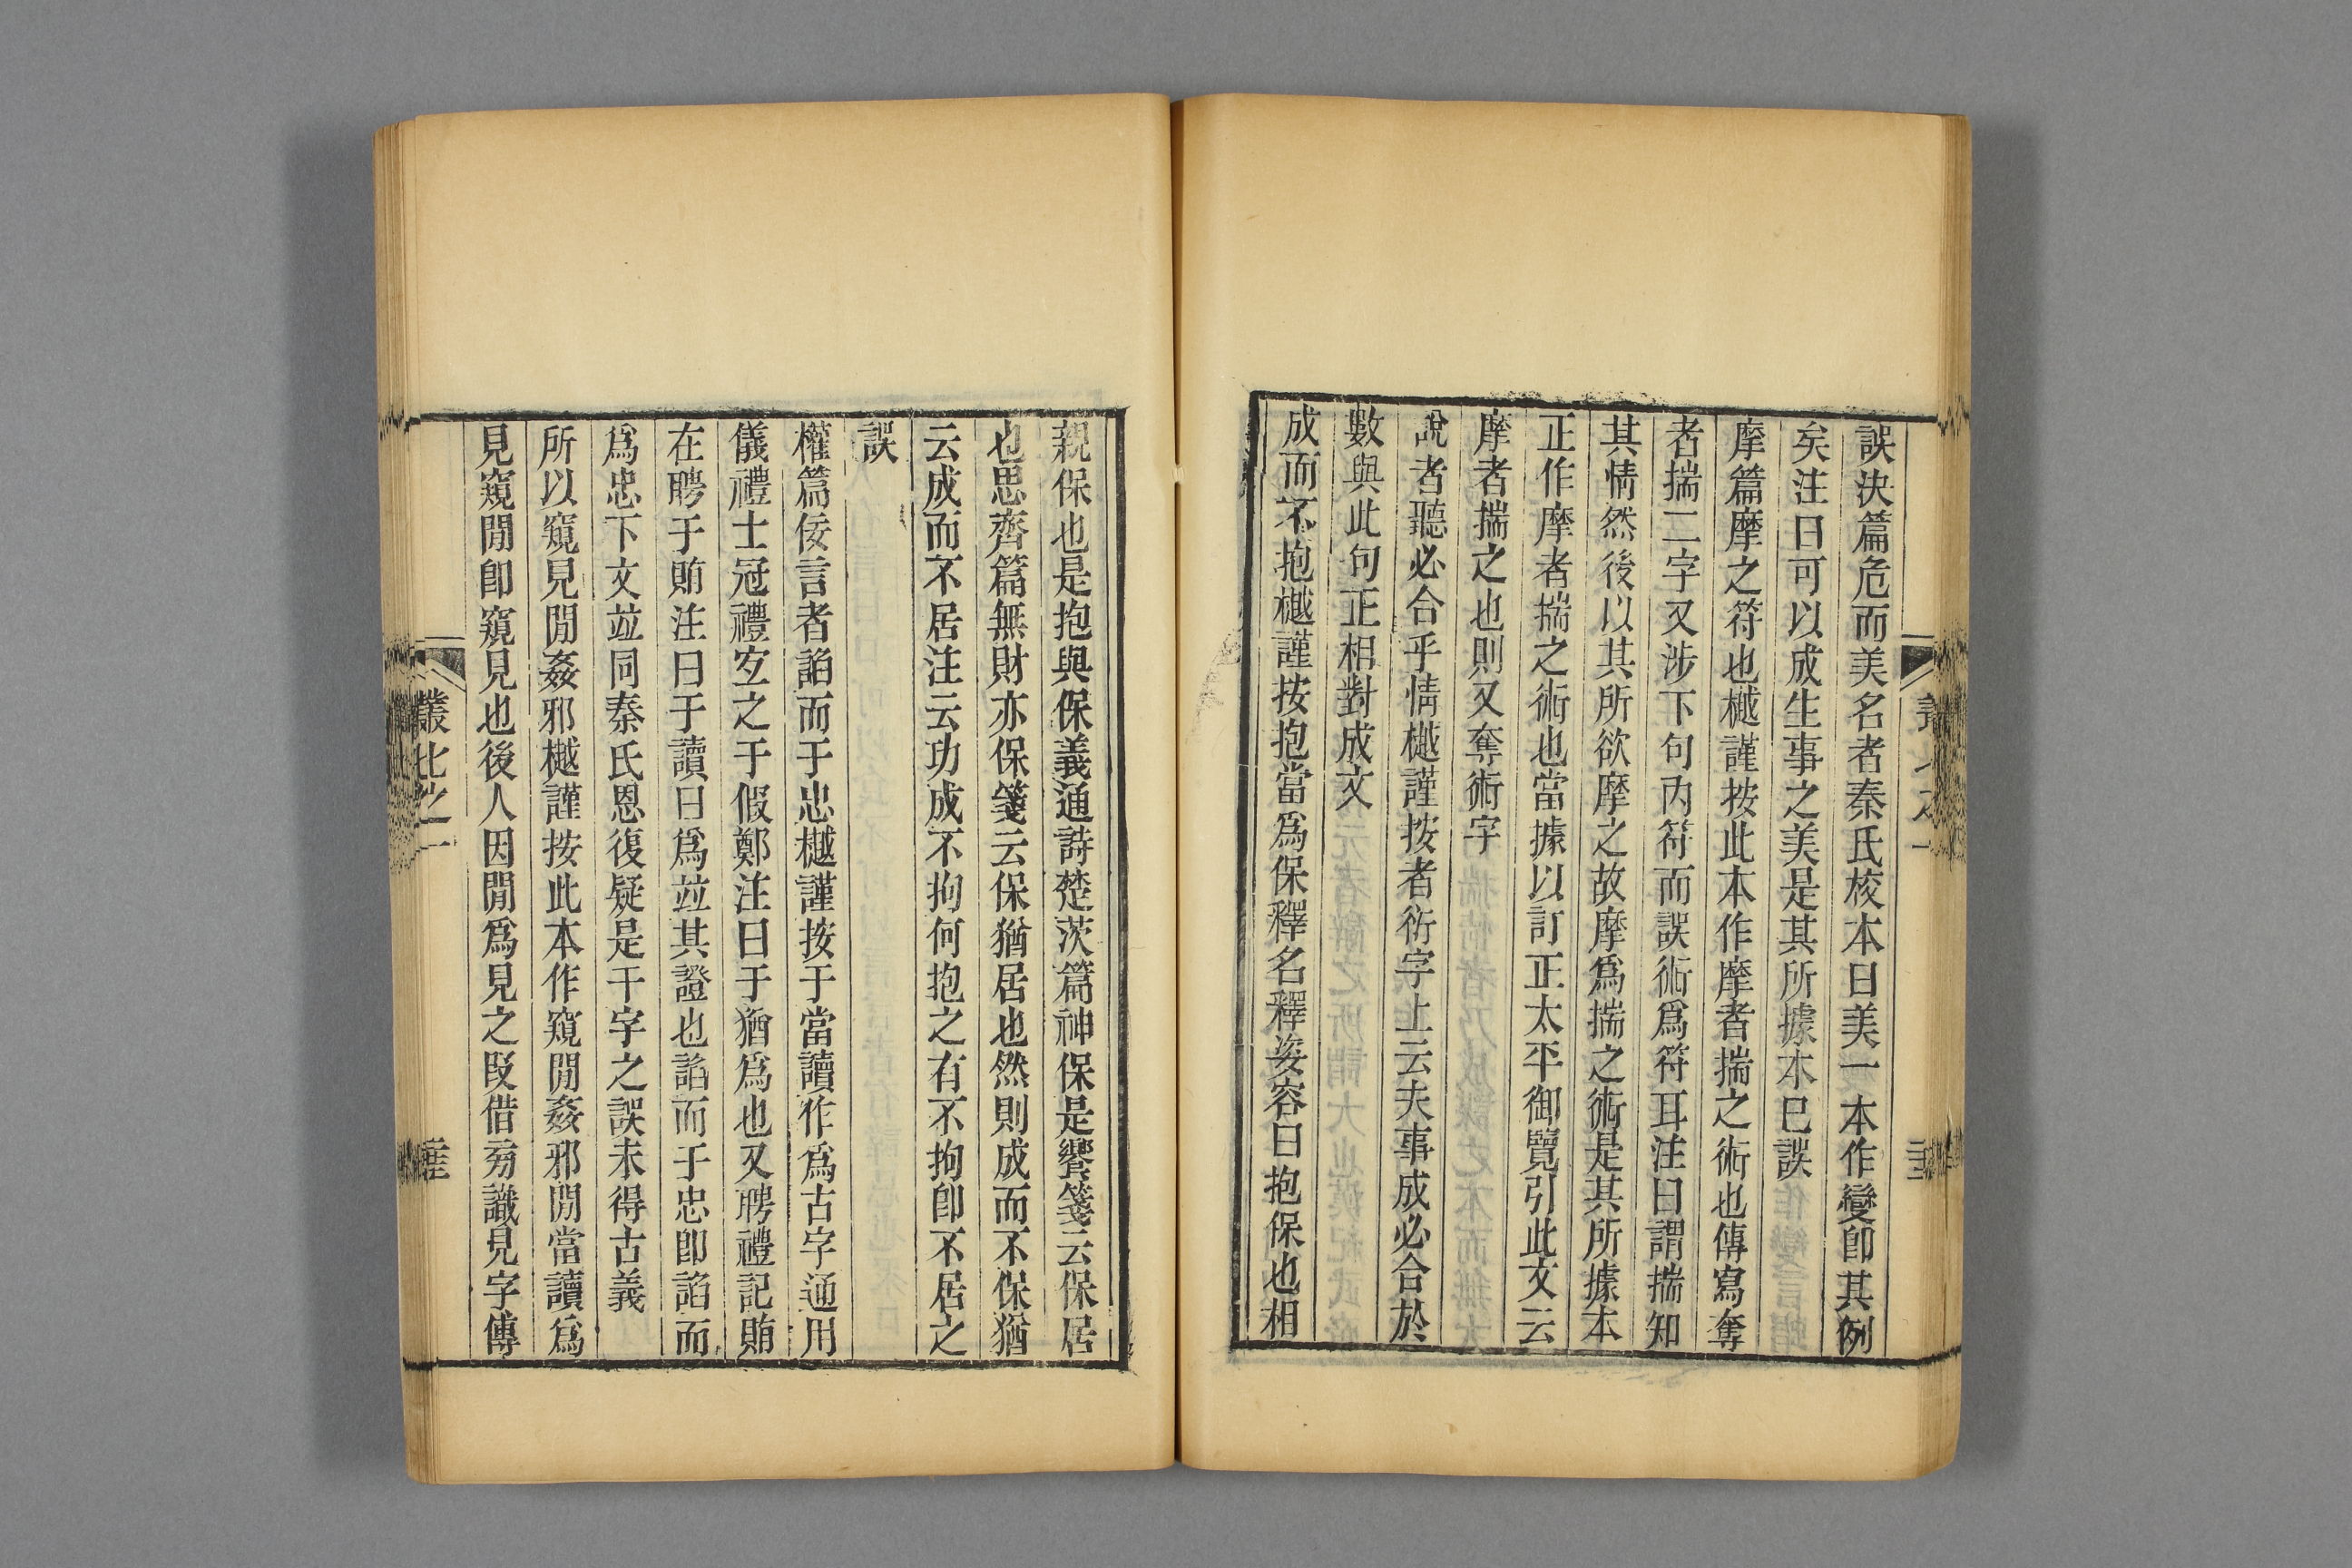 誤決篇危而美名者秦氏校本曰美一本作變卽其例
矣注曰可以成生事之美是其所據本已誤
摩篇摩之符也樾謹按此本作摩者揣之術也傳寫奪
者揣二字又涉下句內符而誤術爲符耳注曰謂揣知
其情然後以其所欲摩之故摩爲揣之術是其所據本
正作摩者揣之術也當據以訂正太平御覽引此文云
摩者揣之也則又奪術字
說者聽必合乎情樾謹按者衍字上云夫事成必合於
數與此句正相對成文
成而不抱樾謹按抱當爲保釋名釋姿容曰抱保也相
親保也是抱與保義通詩楚茨篇神保是饗箋云保居
也思齊篇無財亦保箋云保猶居也然則成而不保猶
云成而不居注云功成不拘何抱之有不拘卽不居之
誤
權篇佞言者諂而于忠樾謹按于當讀作爲古字通用
儀禮士冠禮宐之于假鄭注曰于猶爲也又聘禮記賄
在聘于賄注曰于讀曰爲竝其證也諂而于忠卽諂而
爲忠下文竝同秦氏恩復疑是干字之誤未得古義
所以窺見閒姦邪樾謹按此本作窺閒姦邪閒當讀爲
見窺閒卽窺見也後人因閒爲見之叚借旁識見字傳